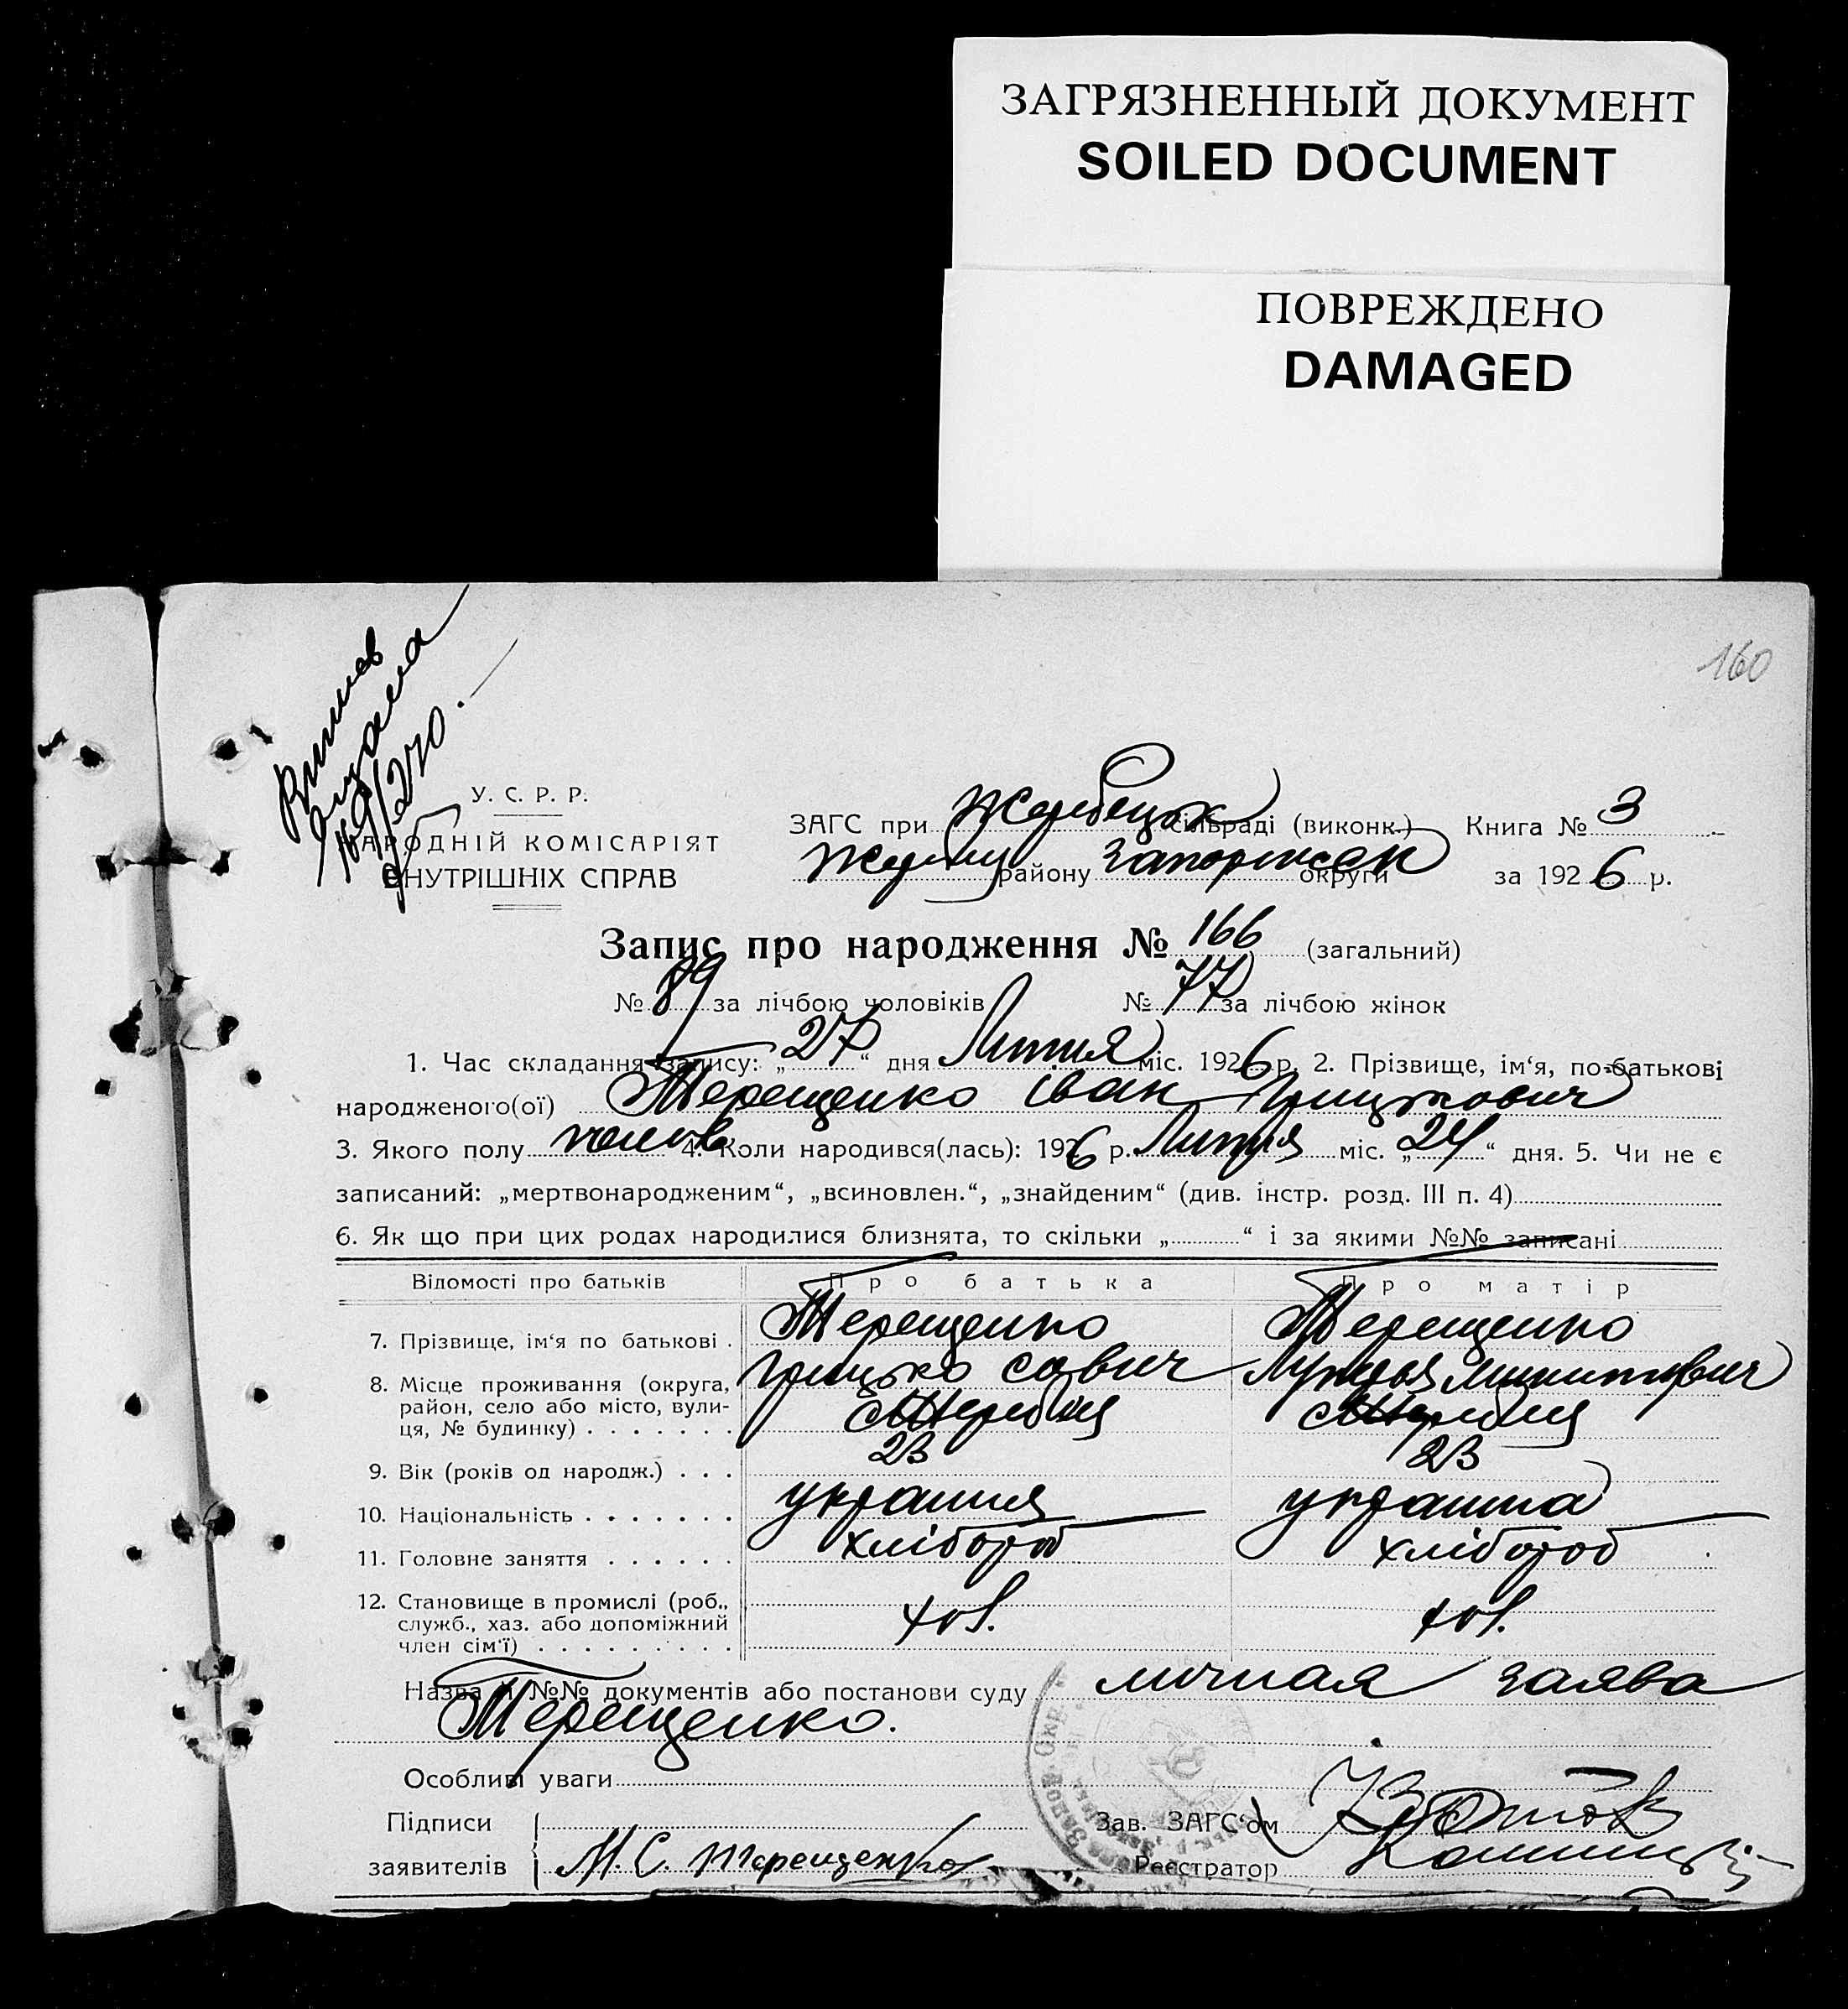 ЗАГРЯЗНЕННЫЙ ДОКУМЕНТ
SOILED DOCUMENT
ПОВРЕЖДЕНО
DAMAGED
160
У. С. Р. Р.
НАРОДНІЙ КОМІСАРІЯТ
ВНУТРІШНІХ СПРАВ
ЗАГС при Жеребецьк сільраді (виконк.) Книга № 3
району Запоріжськ округи за 1926 р.
Запис про народження № 166 (загальний)
№ 89 за лічбою чоловіків № 77 за лічбою жінок
1. Час складання запису: „27“ дня Липня міс. 1926 р. 2. Прізвище, ім‘я, по-батькові
народженого(ої) Терещенко Іван Грицькович
3. Якого полу чолов 4. Коли народився(лась): 1926 р. Липня міс. „24“ дня. 5. Чи не є
записаний: „мертвонародженим“, „всиновлен.“, „знайденим“ (див. інстр. розд. III п. 4)
6. Як що при цих родах народилися близнята, то скільки „ “ і за якими №№ записані
Відомості про батьків Про батька Про матір
7. Прізвище, ім‘я по батькові . Терещенко Терещенко
Грицько Савич
8. Місце проживання (округа,
район, село або місто, вули-
ця, № будинку) . . . . . . .
9. Вік (років од народж.) . . . 23 23
10. Національність . . . . . . .
11. Головне заняття . . . . . . хлібороб хлібороб
12. Становище в промислі (роб.,
служб., хаз. або допоміжний
член сім‘ї) . . . . . . . . .
Назва й №№ документів або постанови суду личная заява
Терещенко.
Особливі уваги
Підписи Зав. ЗАГС‘ом
заявителів М. С. Терещенко Реєстратор